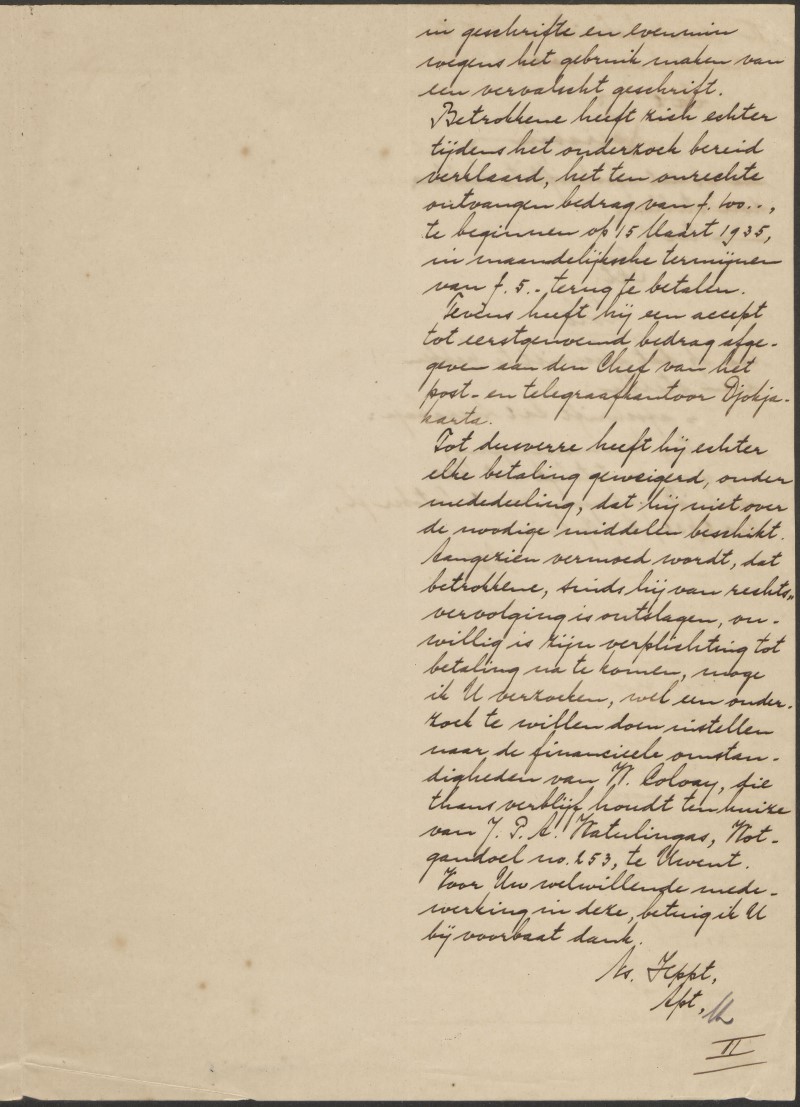 in geschrifte en evenmin
wegens het gebruik maken van
een vervalscht geschrift.
Betrokkene heeft zich echter
tijdens het onderzoek bereid
verklaard, het ten onrechte
ontvangen bedrag van f. 100.-,
te beginnen op 15 Maart 1935,
in maandelijksche termijnen
van f. 5.- terug te betalen.
Tevens heeft hij een accept
tot eerstgenoemd bedrag afge-
geven aan den Chef van het
post- en telegraafkantoor Djokja-
karta.
Tot dusverre heeft hij echter
elke betaling geweigerd, onder
mededeeling, dat hij niet over
de noodige middelen beschikt.
Aangezien vermoed wordt, dat
betrokkene, sinds hij van rechts-
vervolging is ontslagen, on-
willig is zijn verplichting tot
betaling na te komen, moge
ik U verzoeken, wel een onder-
zoek te willen doen instellen
naar de financieele omstan-
digheden van W. Coloay, die
thans verblijf houdt ten huize
van J. P. A. Watulingas, Wot-
gandoel no. 253, te Uwent.
Voor Uw welwillende mede-
werking in deze, betuig ik U
bij voorbaat dank.
Ns. Ieppt,
Apt,
II